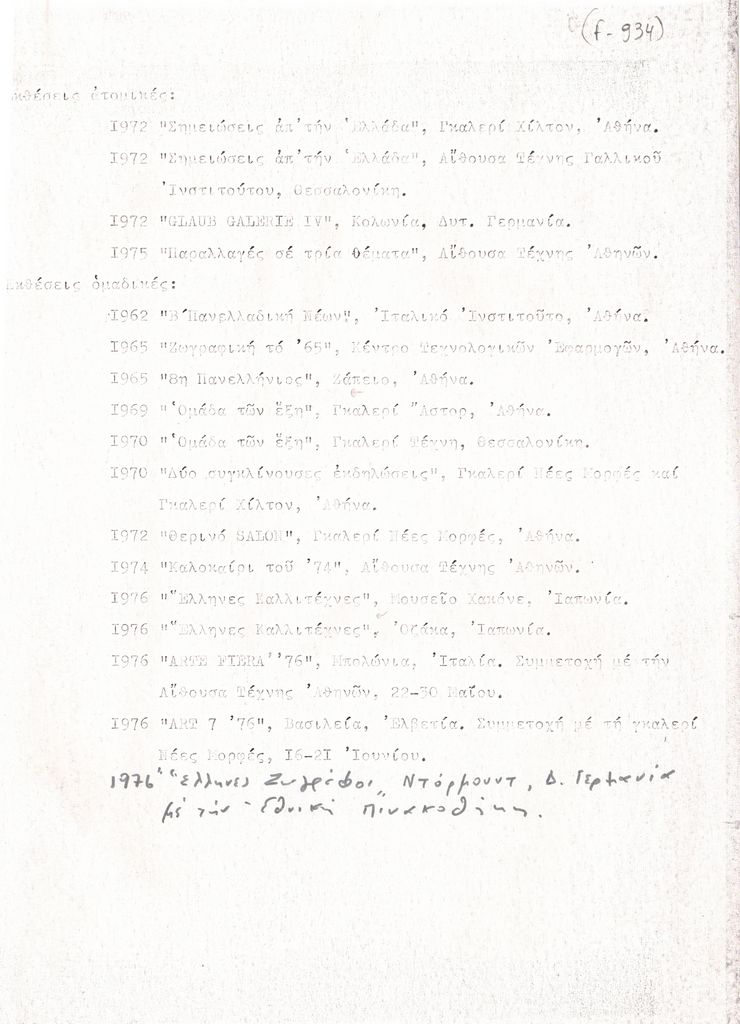 (f-934)
κθέσεις ἀτομικές:
1972 "Σημειώσεις ἀπ'τήν Ἑλλάδα", Γκαλερί Χίλτον, Ἀθήνα.
1972 "Σημειώσεις ἀπ'τήν Ἑλλάδα", Αἴθουσα Τέχνης Γαλλικοῦ
Ἰνστιτούτου, Θεσσαλονίκη.
1972 "GLAUB GALERIE IV", Κολωνία, Δυτ. Γερμανία.
1975 "Παραλλαγές σέ τρία θέματα", Αἴθουσα Τέχνης Ἀθηνῶν.
κθέσεις ὁμαδικές:
1962 "Β΄Πανελλαδική Νέων", Ἰταλικό Ἰνστιτοῦτο, Ἀθήνα.
1965 "Ζωγραφική τό '65", Κέντρο Τεχνολογικῶν Ἐφαρμογῶν, Ἀθήνα.
1965 "8η Πανελλήνιος", Ζάπειο, Ἀθήνα.
1969 "Ὁμάδα τῶν ἕξη", Γκαλερί Ἄστορ, Ἀθήνα.
1970 "Ὁμάδα τῶν ἕξη", Γκαλερί Τέχνη, Θεσσαλονίκη.
1970 "Δύο συγκλίνουσες ἐκδηλώσεις", Γκαλερί Νέες Μορφές καί
Γκαλερί Χίλτον, Ἀθήνα.
1972 "Θερινό SALON", Γκαλερί Νέες Μορφές, Ἀθήνα.
1974 "Καλοκαίρι τοῦ '74", Αἴθουσα Τέχνης Ἀθηνῶν.
1976 "Ἕλληνες Καλλιτέχνες", Μουσεῖο Χακόνε, Ἰαπωνία.
1976 "Ἕλληνες Καλλιτέχνες", Ὀζάκα, Ἰαπωνία.
1976 "ARTE FIERA '76", Μπολώνια, Ἰταλία. Συμμετοχή μέ τήν
Αἴθουσα Τέχνης Ἀθηνῶν, 22-30 Μαΐου.
1976 "ART 7 '76", Βασιλεία, Ἑλβετία. Συμμετοχή μέ τή γκαλερί
Νέες Μορφές, 16-21 Ἰουνίου.
1976 "Ἕλληνες Ζωγράφοι" Ντόρμουντ, Δ. Γερμανία
μέ τήν Ἐθνική Πινακοθήκη.